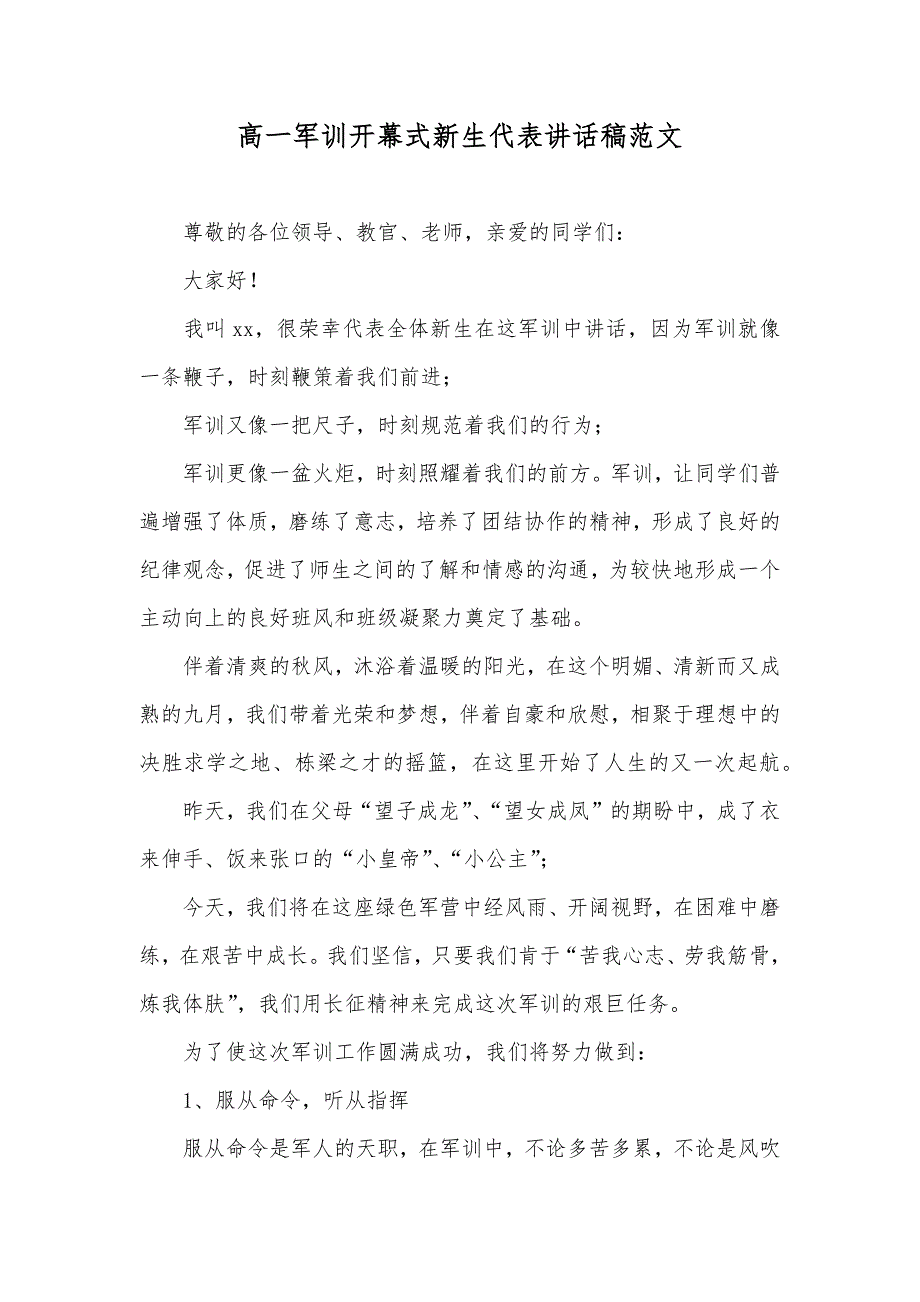 高一军训开幕式新生代表讲话稿范文
尊敬的各位领导、教官、老师，亲爱的同学们：
大家好！
我叫 xx，很荣幸代表全体新生在这军训中讲话，因为军训就像
一条鞭子，时刻鞭策着我们前进；
军训又像一把尺子，时刻规范着我们的行为；
军训更像一盆火炬，时刻照耀着我们的前方。军训，让同学们普
遍增强了体质，磨练了意志，培养了团结协作的精神，形成了良好的
纪律观念，促进了师生之间的了解和情感的沟通，为较快地形成一个
主动向上的良好班风和班级凝聚力奠定了基础。
伴着清爽的秋风，沐浴着温暖的阳光，在这个明媚、清新而又成
熟的九月，我们带着光荣和梦想，伴着自豪和欣慰，相聚于理想中的
决胜求学之地、栋梁之才的摇篮，在这里开始了人生的又一次起航。
昨天，我们在父母“望子成龙”、“望女成凤”的期盼中，成了衣
来伸手、饭来张口的“小皇帝”、“小公主”；
今天，我们将在这座绿色军营中经风雨、开阔视野，在困难中磨
练，在艰苦中成长。我们坚信，只要我们肯于“苦我心志、劳我筋骨，
炼我体肤”，我们用长征精神来完成这次军训的艰巨任务。
为了使这次军训工作圆满成功，我们将努力做到：
1、服从命令，听从指挥
服从命令是军人的天职，在军训中，不论多苦多累，不论是风吹